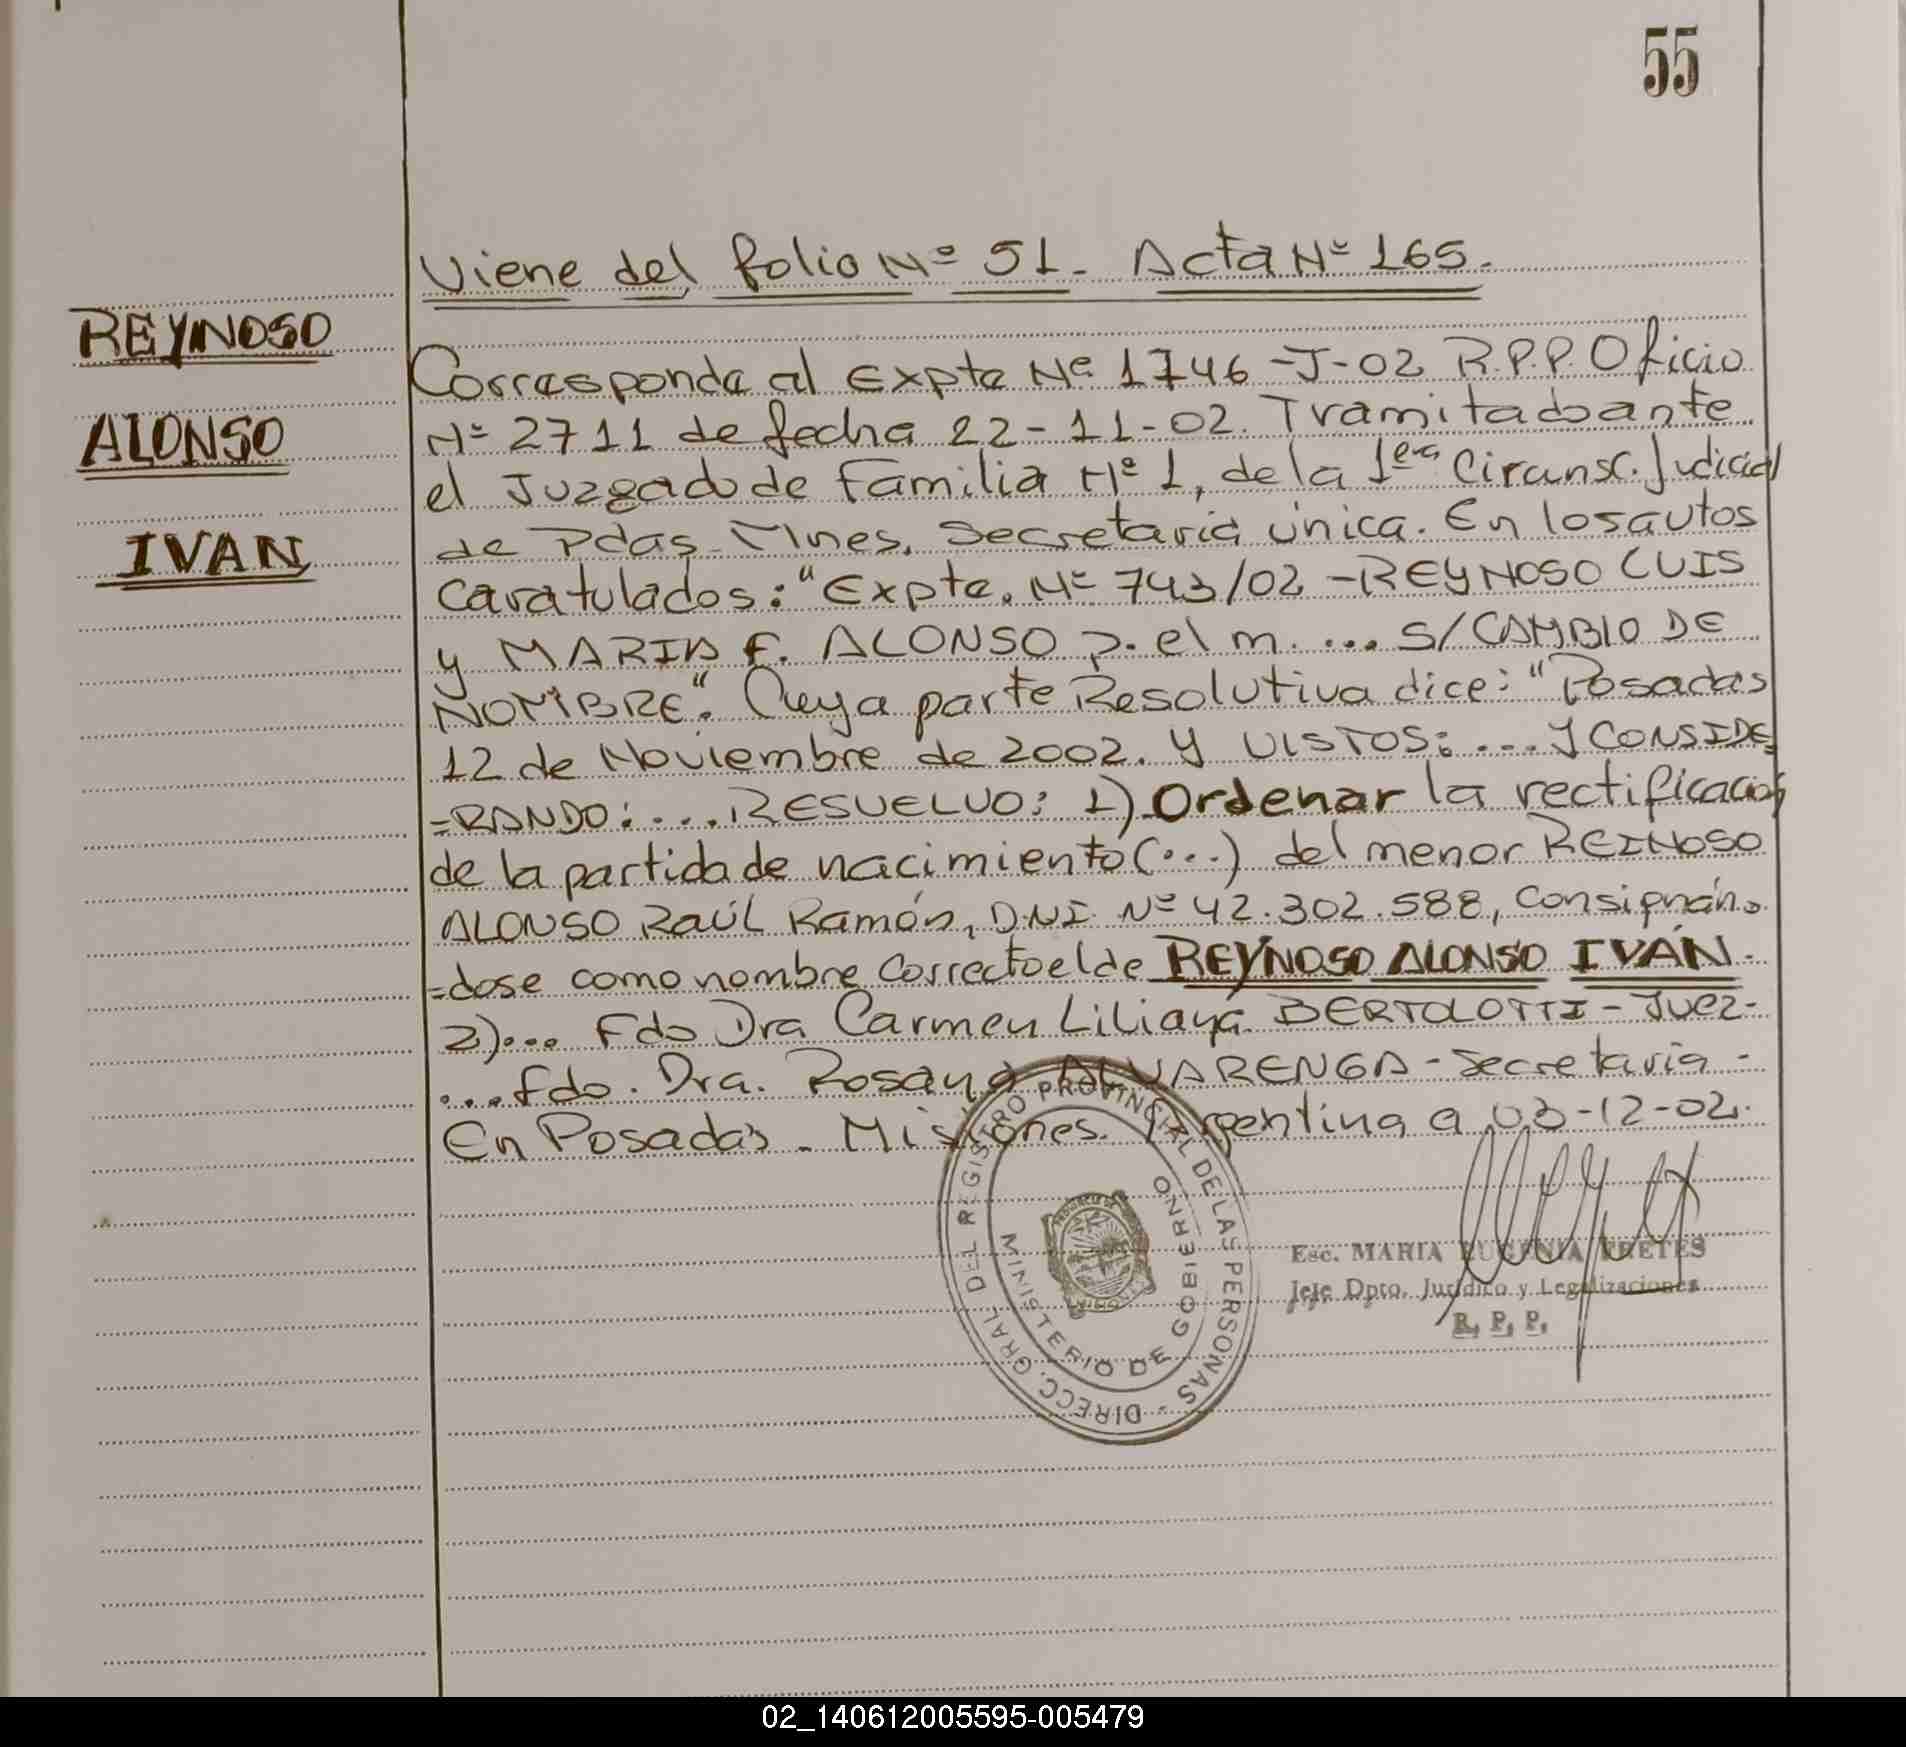 55
Viene del folio Nº 51. Acta Nº 165.
REYNOSO
ALONSO
IVAN
Corresponde al Expte Nº 1746-J-02 R.P.P. Oficio
Nº 2711 de fecha 22-11-02. Tramitado ante
el Juzgado de Familia Nº 1, de la 1era Circunsc. Judicial
de Pdas. Mnes. Secretaria única. En los autos
Caratulados: "Expte. Nº 743/02 - REYNOSO LUIS
y MARIA F. ALONSO p. el m. ... S/CAMBIO DE
NOMBRE". Cuya parte Resolutiva dice: "Posadas
12 de Noviembre de 2002. Y VISTOS: ... y CONSIDE=
=RANDO: ... RESUELVO: 1) Ordenar la rectificación
de la partida de nacimiento (...) del menor REINOSO
ALONSO Raúl Ramón, D.N.I. Nº 42.302.588, consignán=
=dose como nombre correcto el de REYNOSO ALONSO IVÁN.
2)... Fdo Dra Carmen Liliana BERTOLOTTI - Juez-
... Fdo. Dra. Rosana ALVARENGA - Secretaria -
En Posadas - Misiones. Argentina a 03-12-02.
DIRECC. GRAL DEL REGISTRO PROVINCIAL DE LAS PERSONAS -
MINISTERIO DE GOBIERNO
Esc. MARIA EUGENIA FRETES
Jefe Dpto. Jurídico y Legalizaciones
R. P. P.
02_140612005595-005479